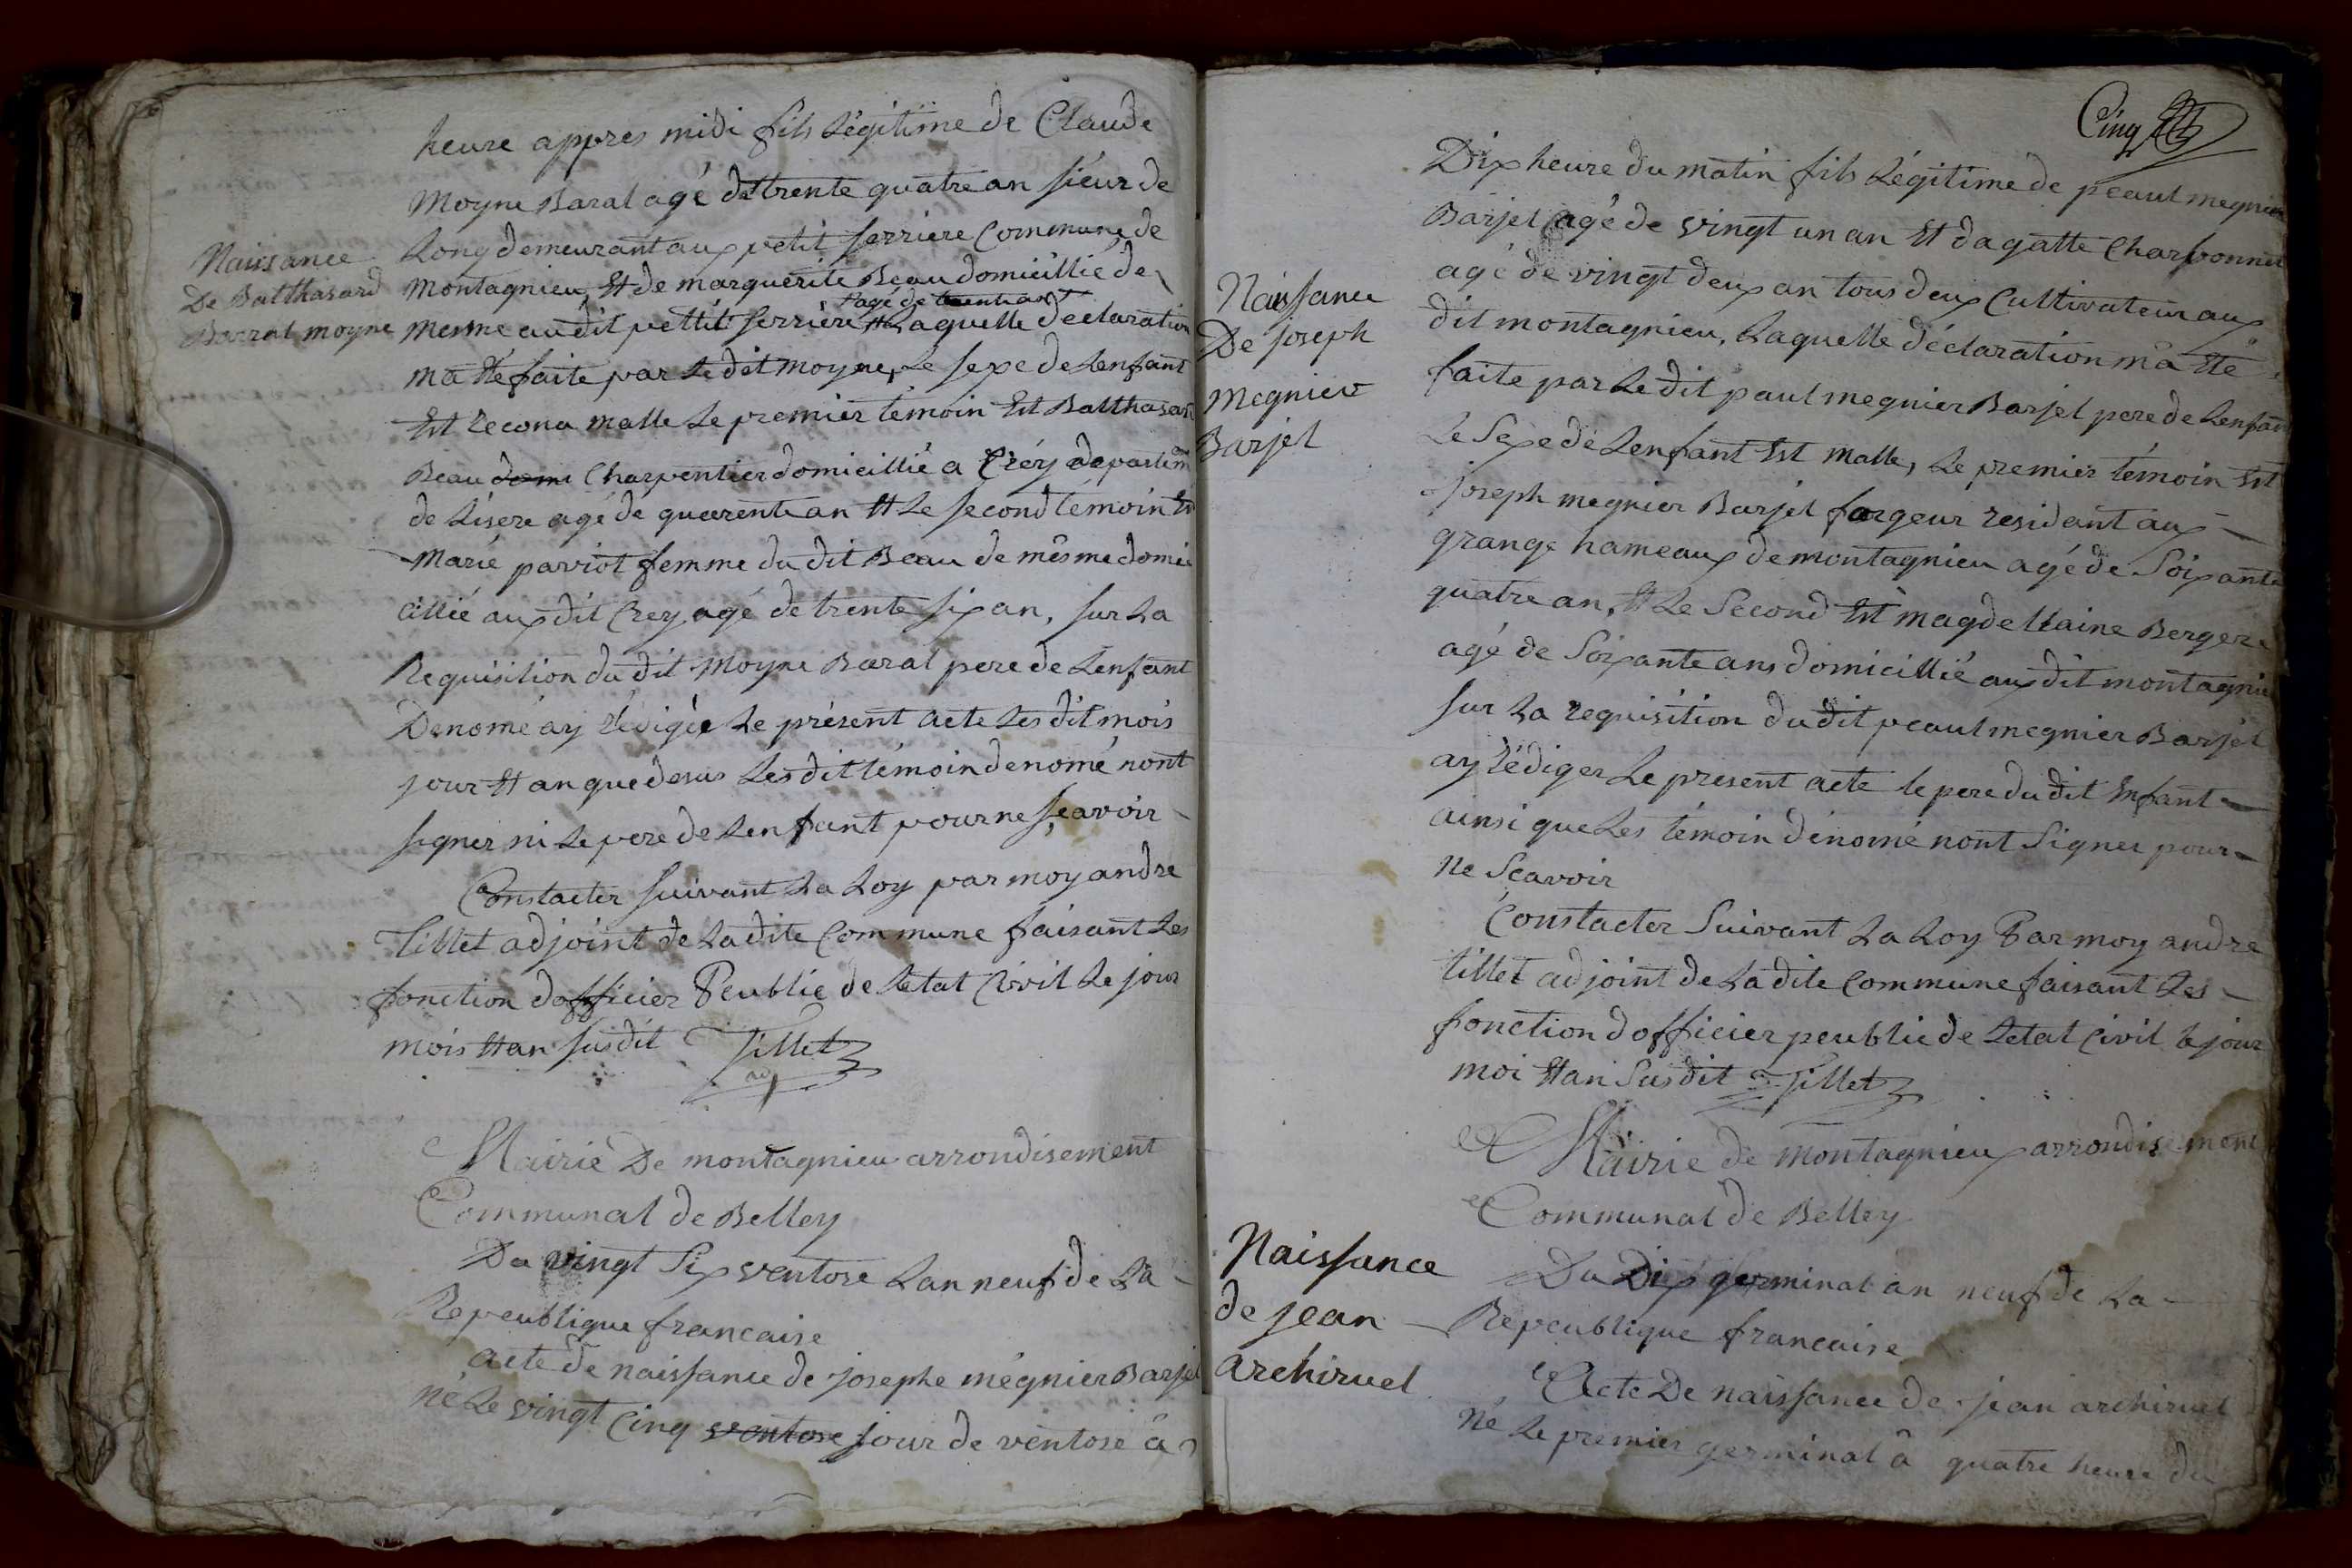 heure appres midi fils Légitime de Claude
Moyne Baral agé de trente quatre an sieur de
Naissance
De Balthasard
Barral moyne
Long demeurant aux petit serriere Commune de
Montagnieu Et de marguerite Beau domicillié de
agé de trente an
mesme audit pettit serriere Et Laquelle declaration
ma Eté faite par Ledit moyne, Le sexe de Lenfant
Est reconu malle Le premier témoin Est Balthasar
Beau domi Charpentier domicillié a Créy departem
de Lisere agé de quarente an Et Le second témoin Est
Marie paviot femme du dit Beau de mesme domi
cillié aux dit Crey agé de trente six an, sur La
Requisition du dit Moyne Baral pere de Lenfant
Denomé ay rédigée Le présent acte Les dit mois
jour Et an que desus Les dit témoin denomé nont
signer ni Le pere de Lenfant pour ne sçavoir
Constacter suivant La Loy par moy andre
Tillet adjoint de Ladite Commune faisant Les
fonction dofficier Peublic de Letat Civil Le jour
mois Et an susdit Tillet
adj
Mairie De montagnieu arrondisement
Communal de Belley
Du vingt Six ventose Lan neuf de La
Republique francaise
acte de naissance de josephe mégnier Barjel
né Le vingt Cinq ventose jour de ventose à
Cinq
Dix heure du matin fils Légitime de peaul megnier
Barjel agé de vingt un an Et dagatte Charbonnet
agé de vingt deux an tous deux Cultivateur aux
Naissance
De joseph
megnier
Barjel
dit montagnieu, Laquelle déclaration ma Eté
faite par Le dit paul megnier Barjel pere de Lenfant
Le Sexe de Lenfant Est malle, Le premier témoin Est
joseph megnier Barjel forgeur residant aux
grange hameaux de montagnieu agé de Soixante
quatre an, Et Le Second Est magdellaine Berger
agé de Soixante ans domicillié aux dit montagnieu
sur La requisition du dit peaul megnier Barjel
ay rédiger Le present acte le pere du dit Enfant
ainsi que Les témoin dénomé nont Signer pour
Ne Scavoir
Constacter Suivant La Loy Par moy andre
tillet adjoint de Ladite Commune faisant Les
fonction dofficier peublic de Letat Civil le jour
moi Et an Susdit Tillet
Mairie de Montagnieux arrondisement
Communal de Belley
Naissance
de jean
archiruel
Du Dix germinal an neuf de La
Republique francaise
Acte De naissance de jean archiruel
Né Le premier germinal à quatre heure du